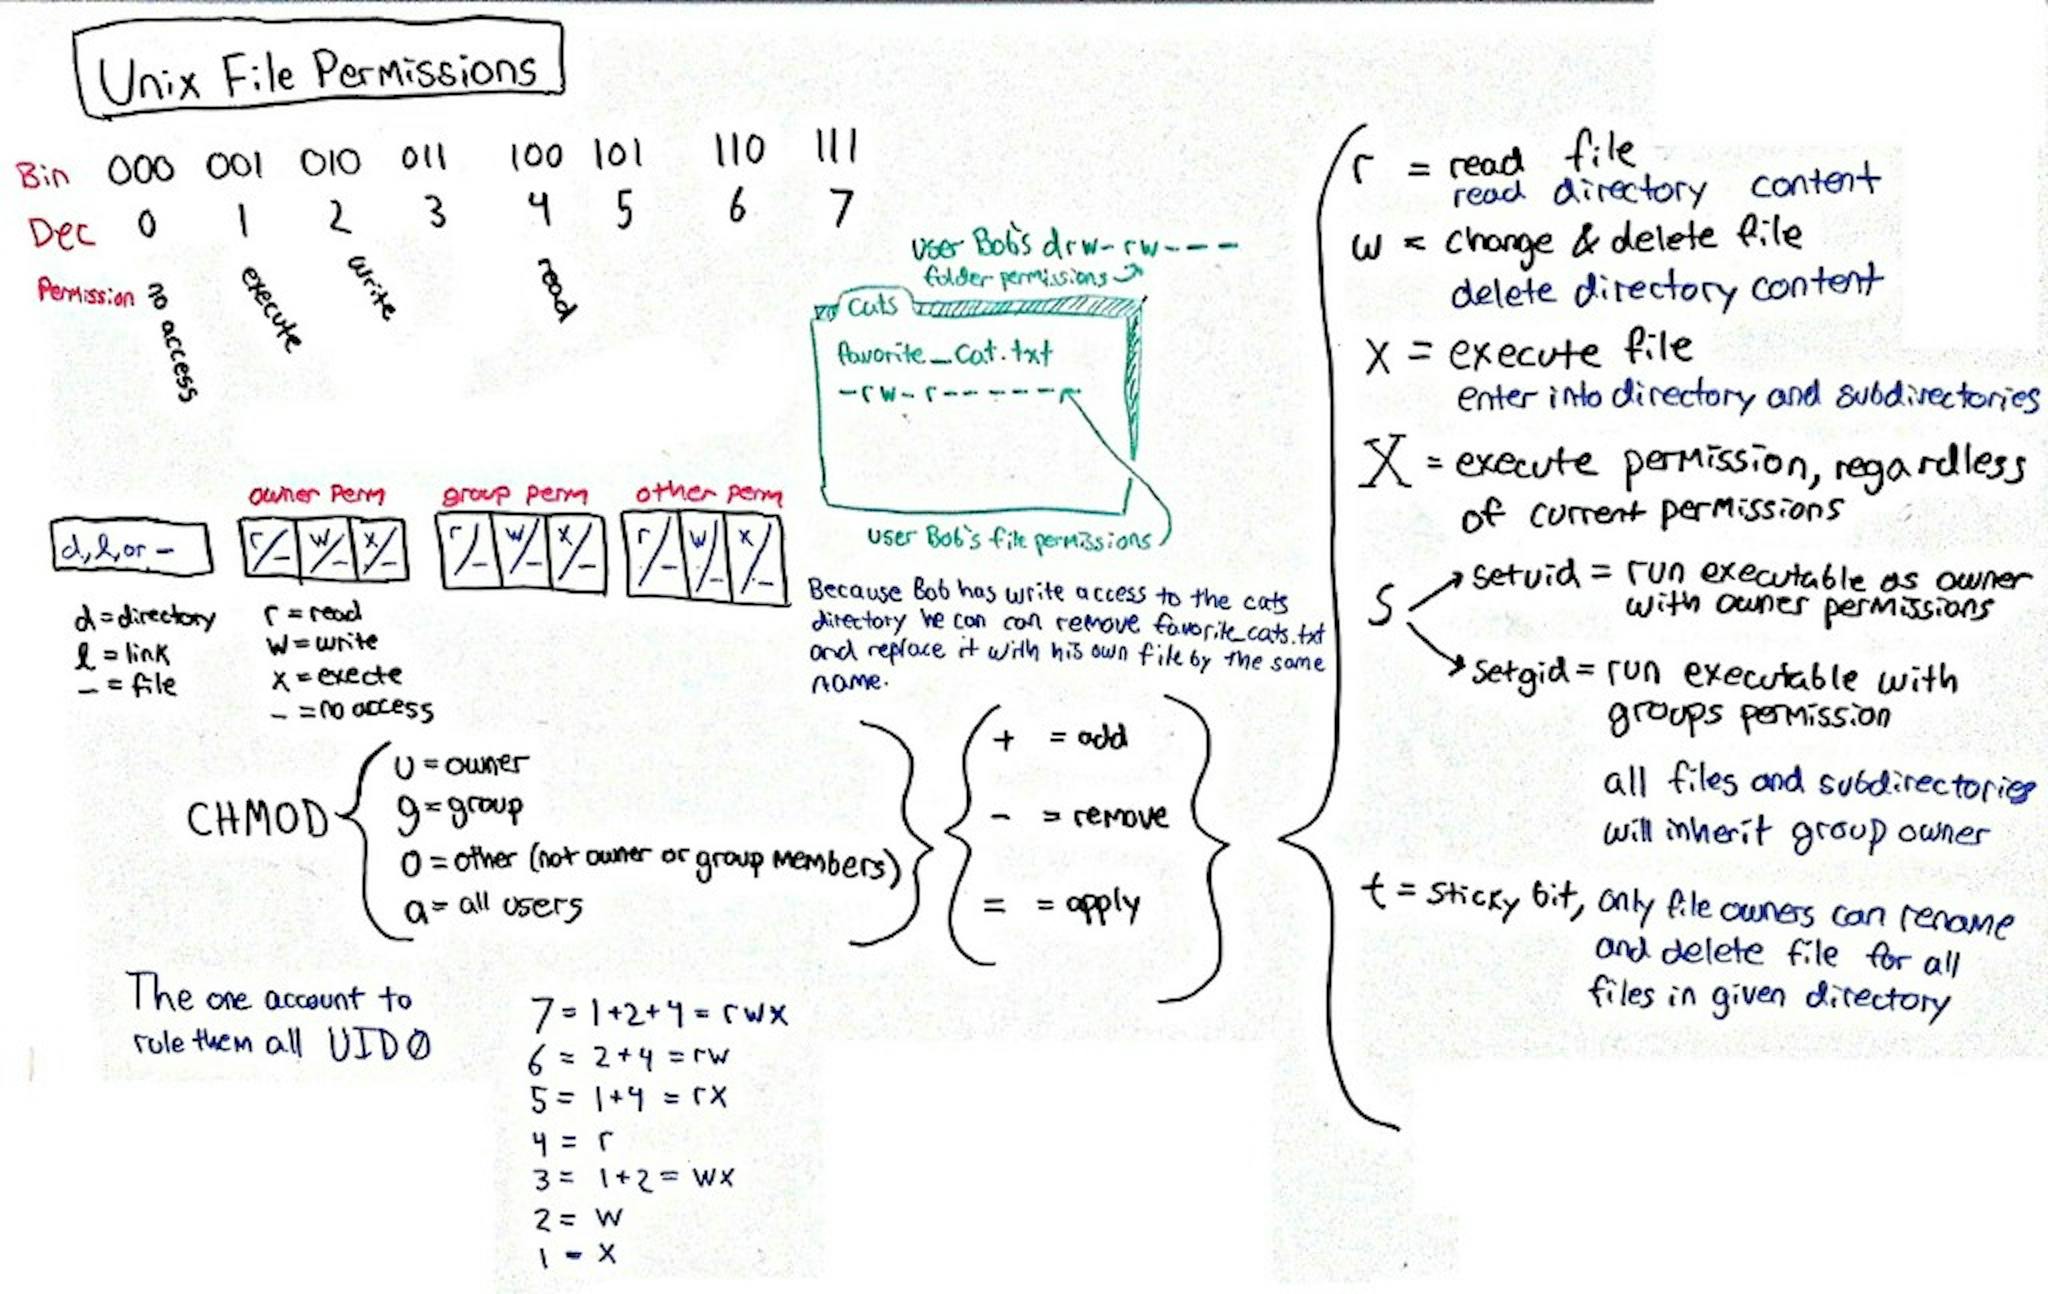 Unix File Permissions
Bin 000 001 010 011 100 101 110 111
Dec 0 1 2 3 4 5 6 7
Permission no access execute write read
user Bob's drw-rw----
folder permissions
Cats
favorite_cat.txt
-rw-r------
user Bob's file permissions
Because Bob has write access to the cats
directory he can can remove favorite_cats.txt
and replace it with his own file by the same
name.
owner perm group perm other perm
d, l, or - r/- w/- x/- r/- w/- x/- r/- w/- x/-
d = directory
l = link
- = file
r = read
w = write
x = execte
- = no access
CHMOD
u = owner
g = group
o = other (not owner or group members)
a = all users
+ = add
- = remove
= = apply
r = read file
read directory content
w = change & delete file
delete directory content
x = execute file
enter into directory and subdirectories
X = execute permission, regardless
of current permissions
S setuid = run executable as owner
with owner permissions
setgid = run executable with
groups permission
all files and subdirectories
will inherit group owner
t = sticky bit, only file owners can rename
and delete file for all
files in given directory
The one account to
rule them all UID0
7 = 1+2+4 = rwx
6 = 2+4 = rw
5 = 1+4 = rx
4 = r
3 = 1+2 = wx
2 = w
1 = x